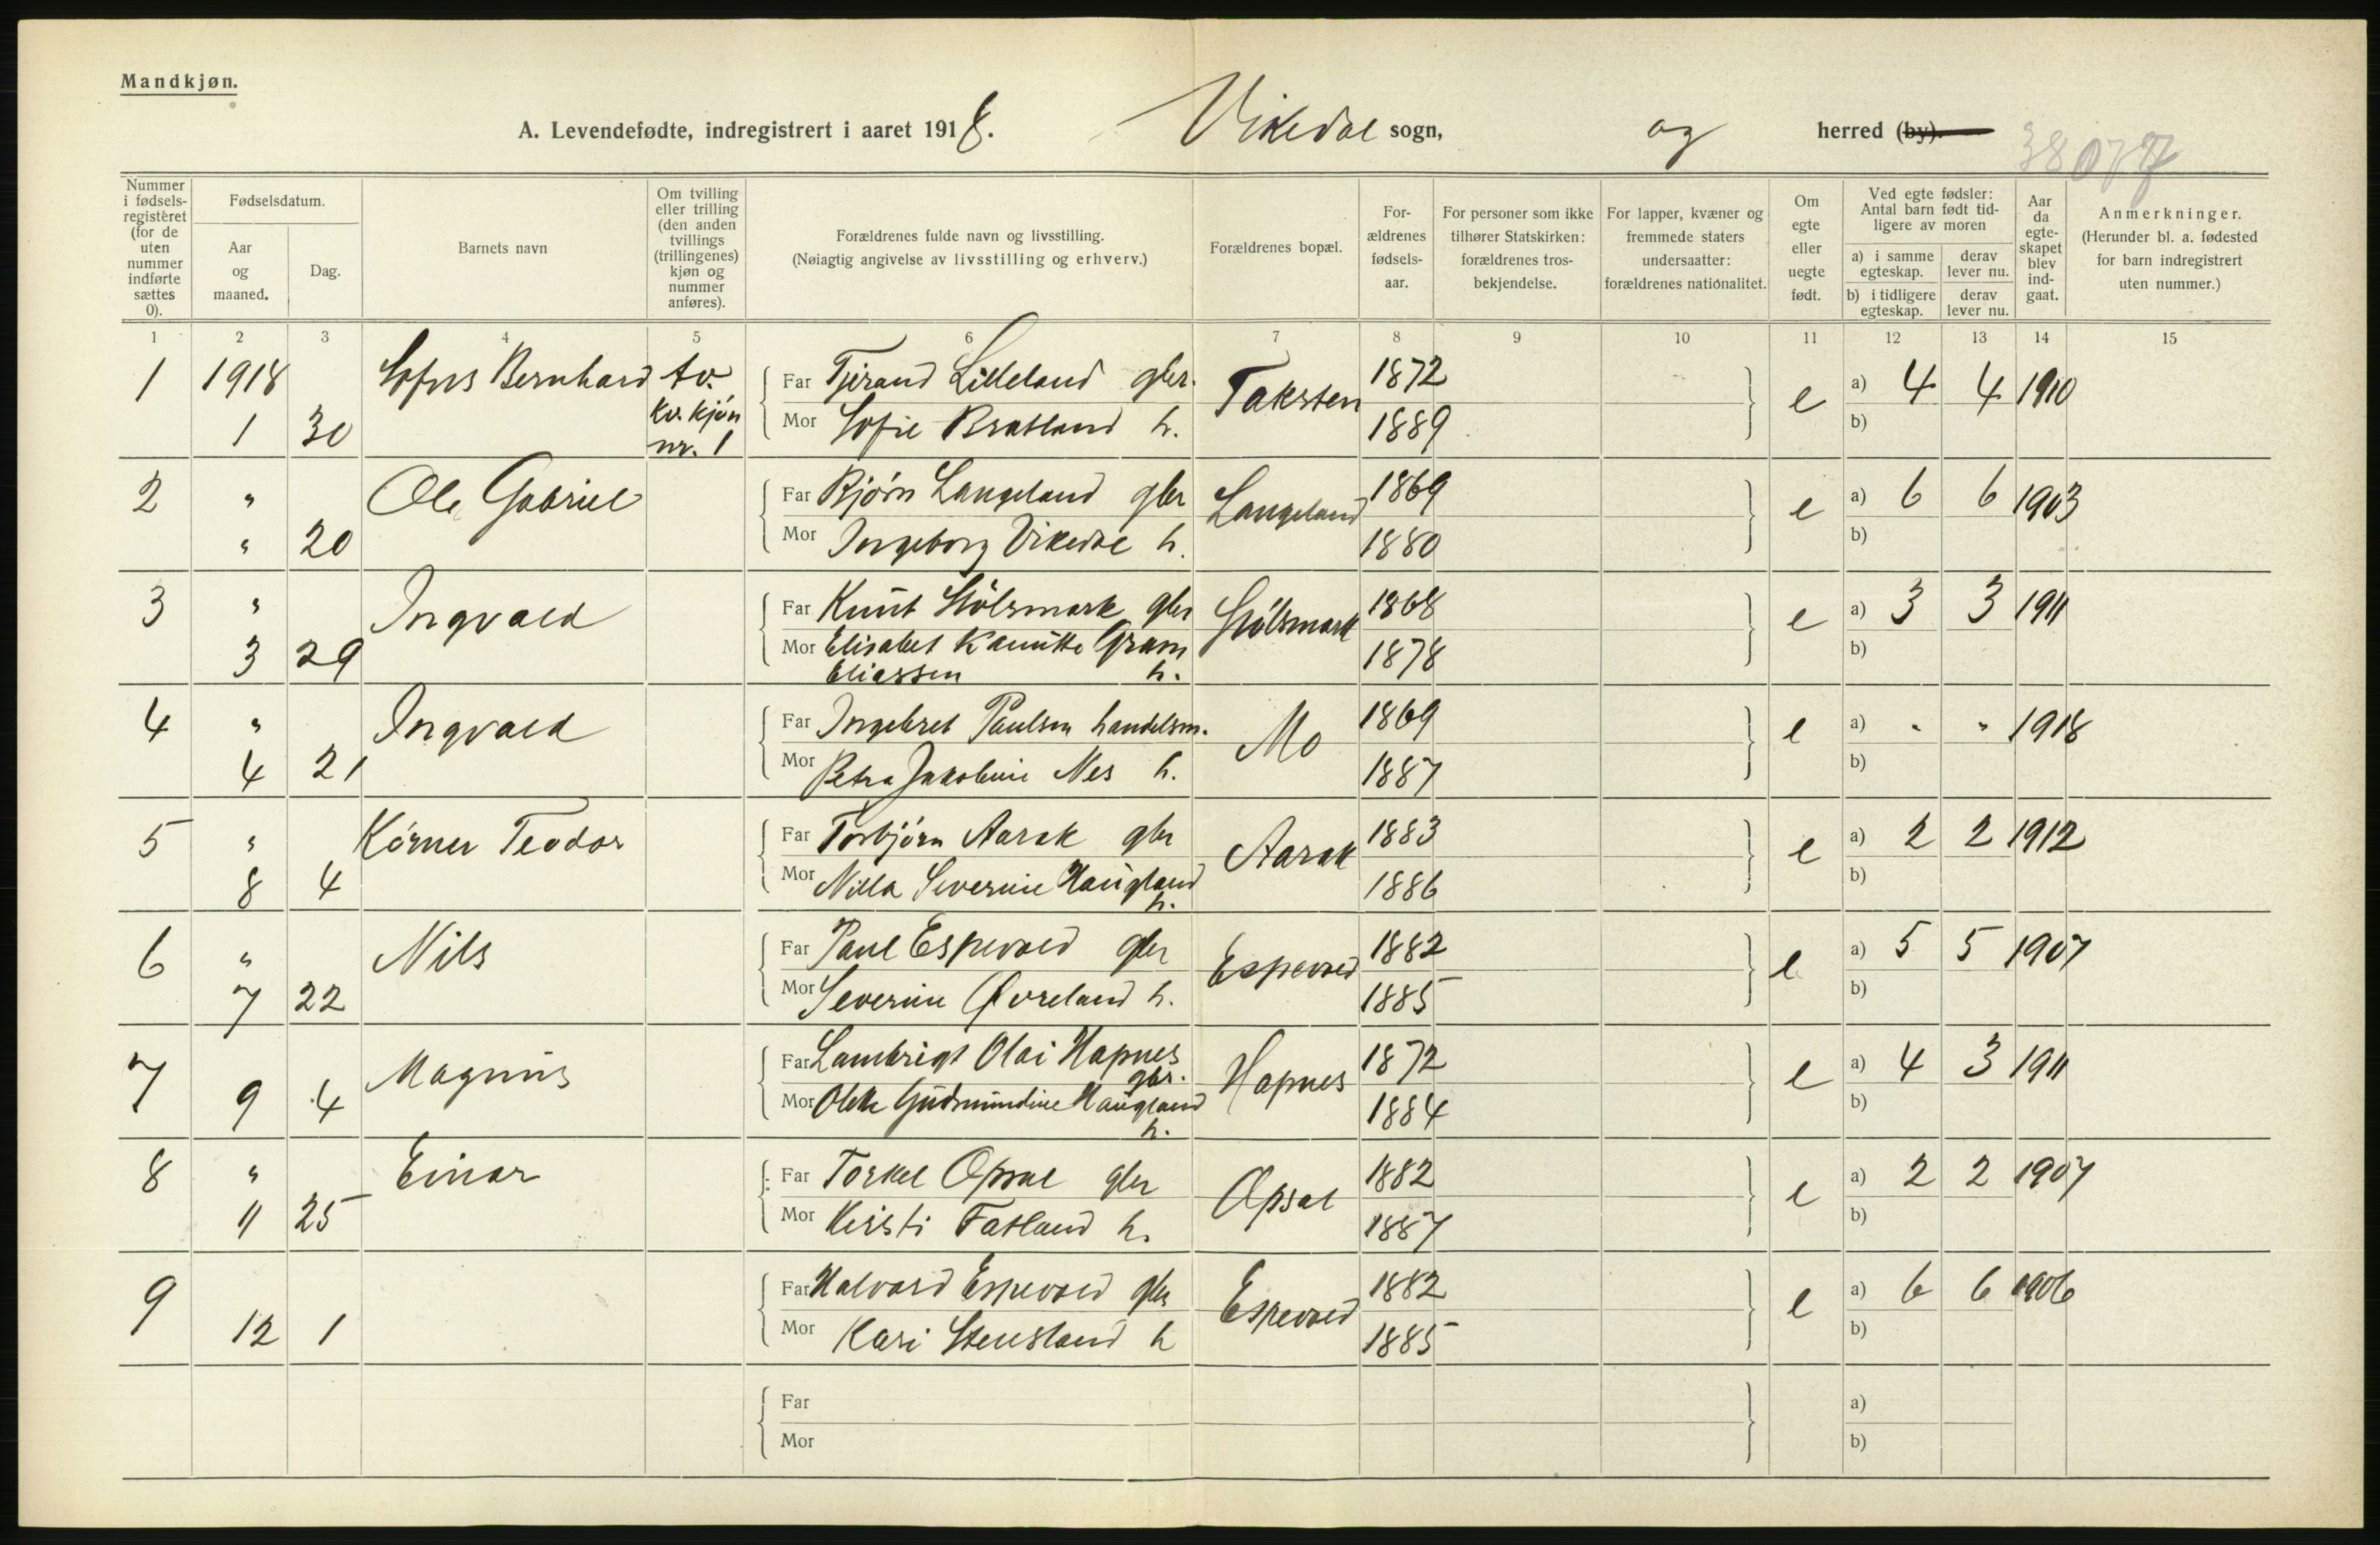 Mandkjøn.
A. Levendefødte, indregistrert i aaret 1918. Vikedal sogn, og herred (by).
38077
Nummer i fødselsregisteret (for de uten nummer indførte sættes 0).
Fødselsdatum.
Aar og maaned.
Dag.
Barnets navn
Om tvilling eller trilling (den anden tvillings (trillingenes) kjøn og nummer anføres).
Forældrenes fulde navn og livsstilling.
(Nøiagtig angivelse av livsstilling og erhverv.)
Forældrenes bopæl.
Forældrenes fødselsaar.
For personer som ikke tilhører Statskirken: forældrenes trosbekjendelse.
For lapper, kvæner og fremmede staters undersaatter: forældrenes nationalitet.
Om egte eller uegte født.
Ved egte fødsler: Antal barn født tidligere av moren
a) i samme egteskap. derav lever nu.
b) i tidligere egteskap. derav lever nu.
Aar da egteskapet blev indgaat.
Anmerkninger.
(Herunder bl. a. fødested for barn indregistrert uten nummer.)
1 2 3 4 5 6 7 8 9 10 11 12 13 14 15
1 1918 Sofus Bernhard tv. Far Tjerand Lilleland gbr. Taksten 1872 e a) 4 4 1910
1 30 kv. kjøn nr. 1 Mor Sofie Bratland h. 1889 b)
2 " Ole Gabriel Far Bjørn Langeland gbr Langeland 1869 e a) 6 6 1903
" 20 Mor Ingeborg Vikedal h. 1880 b)
3 " Ingvald Far Knut Stølsmark gbr Stølsmark 1868 e a) 3 3 1911
3 29 Mor Elisabet Kamitte Gram 1878 b)
Eliassen h.
4 " Ingvald Far Ingebret Paulsen handelsm. Mo 1869 e a) " " 1918
4 21 Mor Petra Jakobine Nes h. 1887 b)
5 " Körner Teodor Far Torbjørn Aarak gbr Aarak 1883 e a) 2 2 1912
8 4 Mor Nilla Severine Haugland h. 1886 b)
6 " Nils Far Paul Espevold gbr Espevold 1882 e a) 5 5 1907
7 22 Mor Severine Øvreland h. 1885 b)
7 Magnus Far Lambrigt Olai Hapnes gbr. Hapnes 1872 e a) 4 3 1911
9 4 Mor Olette Gudmundine Haugland h. 1884 b)
8 " Einar Far Torkel Opsal gbr Opsal 1882 e a) 2 2 1907
11 25 Mor Kirsti Fatland h. 1887 b)
9 Far Halvard Espevold gbr Espevold 1882 e a) 6 6 1906
12 1 Mor Kari Stensland h 1885 b)
Far a)
Mor b)